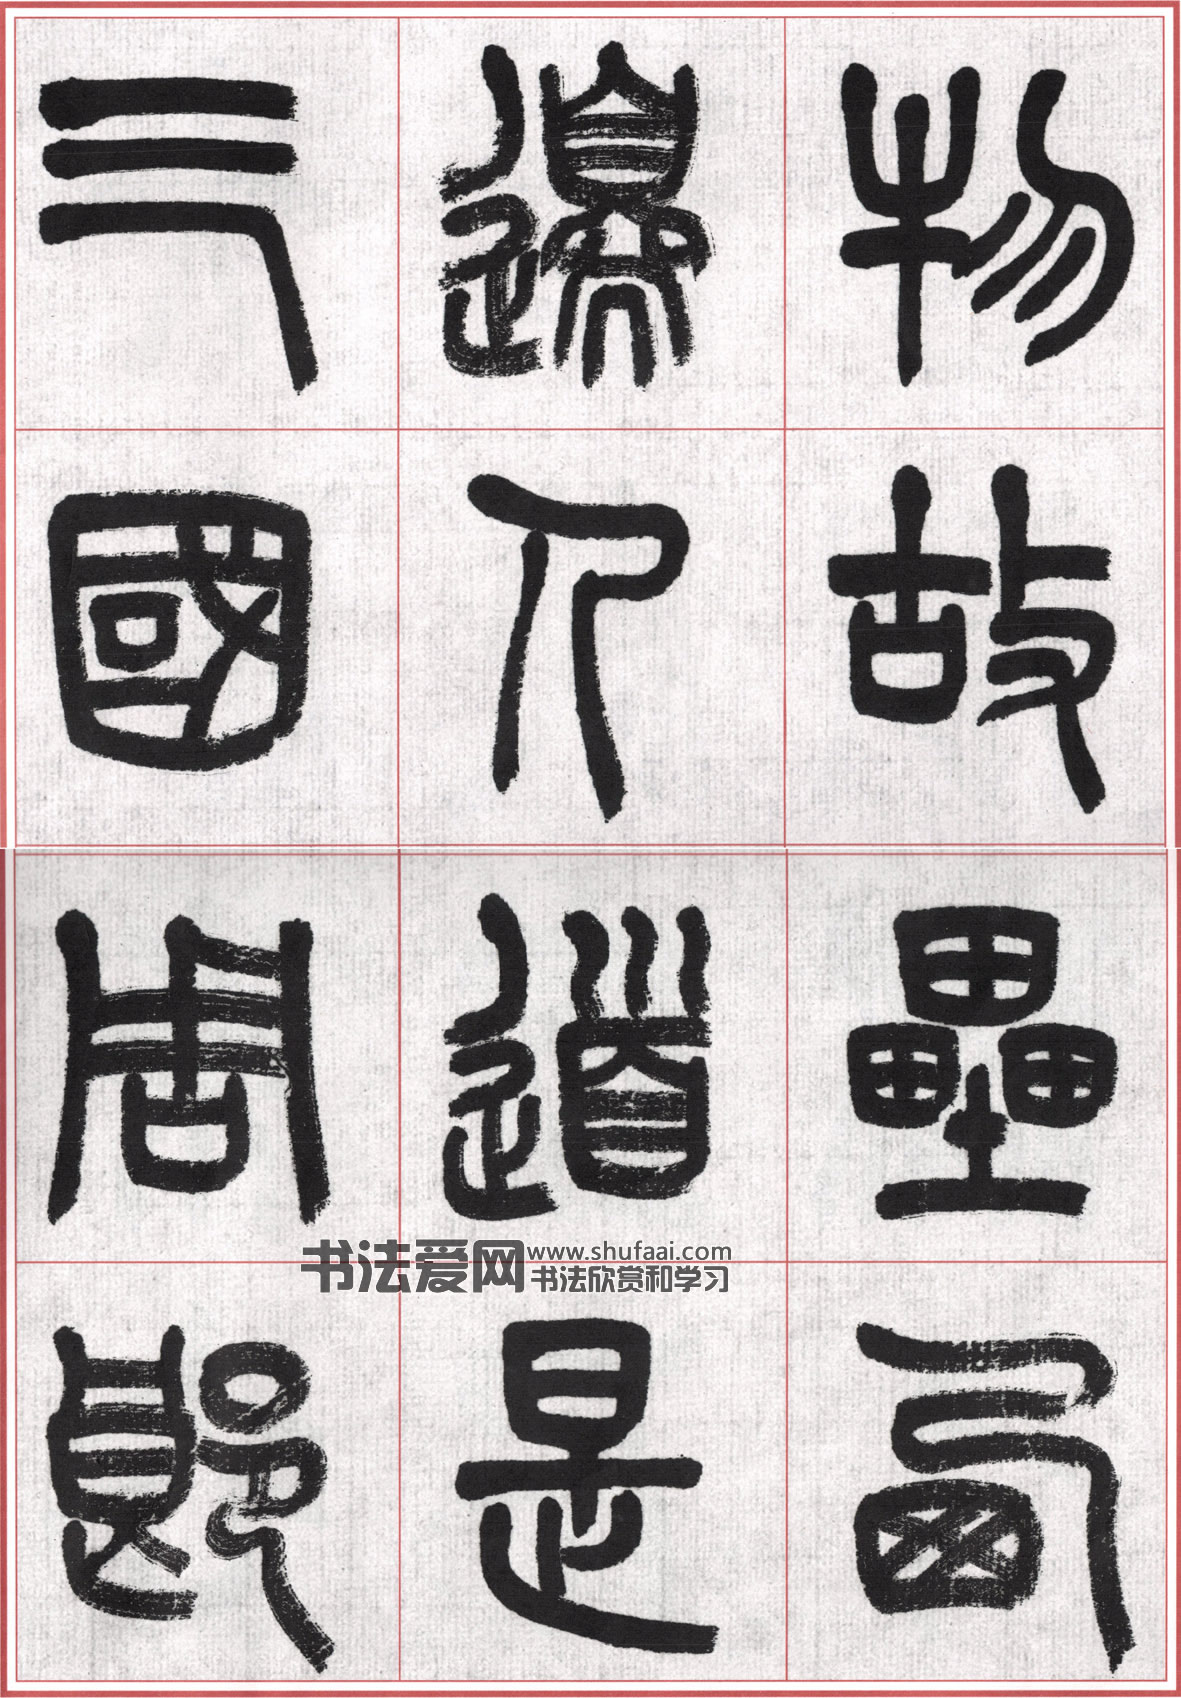 物故壘西
邊人道是
三國周郎
书法爱网 www.shufaai.com
书法欣赏和学习